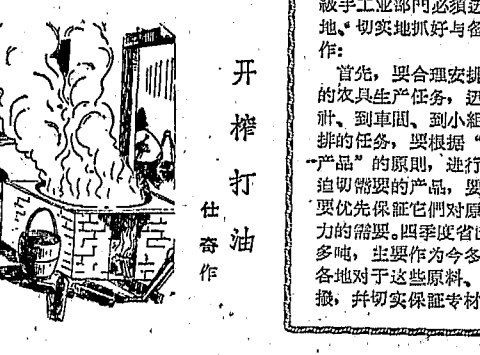 开榨打油
仕奇作
級手工业部門必須进
地、切实地抓好与备
作:
首先，要合理安排
的农具生产任务，迅
社、到車間、到小組
排的任务，要根据“
产品”的原則，进行
迫切需要的产品，要
要优先保証它們对原
力的需要。四季度省
多吨，主要作为今冬
各地对于这些原料、
搬，幷切实保証专材